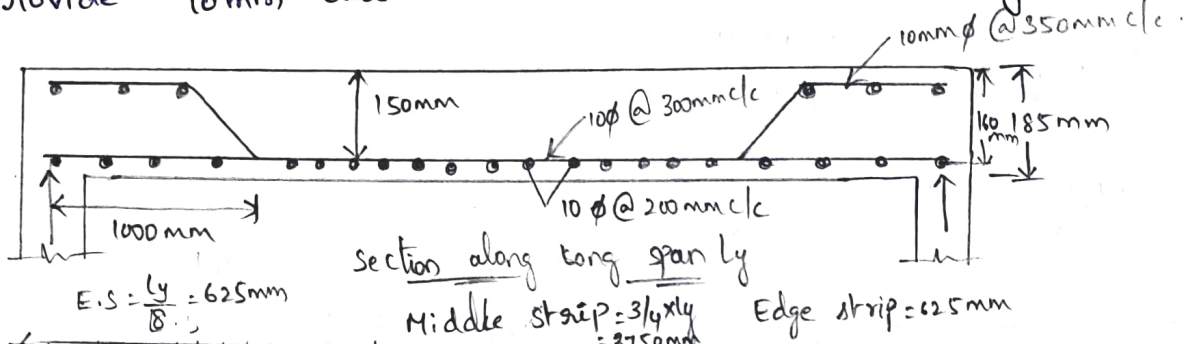 10mmϕ @ 350mm c/c.
150mm
10ϕ @ 300mm c/c
160 mm
185mm
10 ϕ @ 200 mm c/c
1000 mm
Section along long span ly
E.S = ly/8 = 625mm
Middle strip = 3/4 x ly
= 3750mm
Edge strip = 625 mm